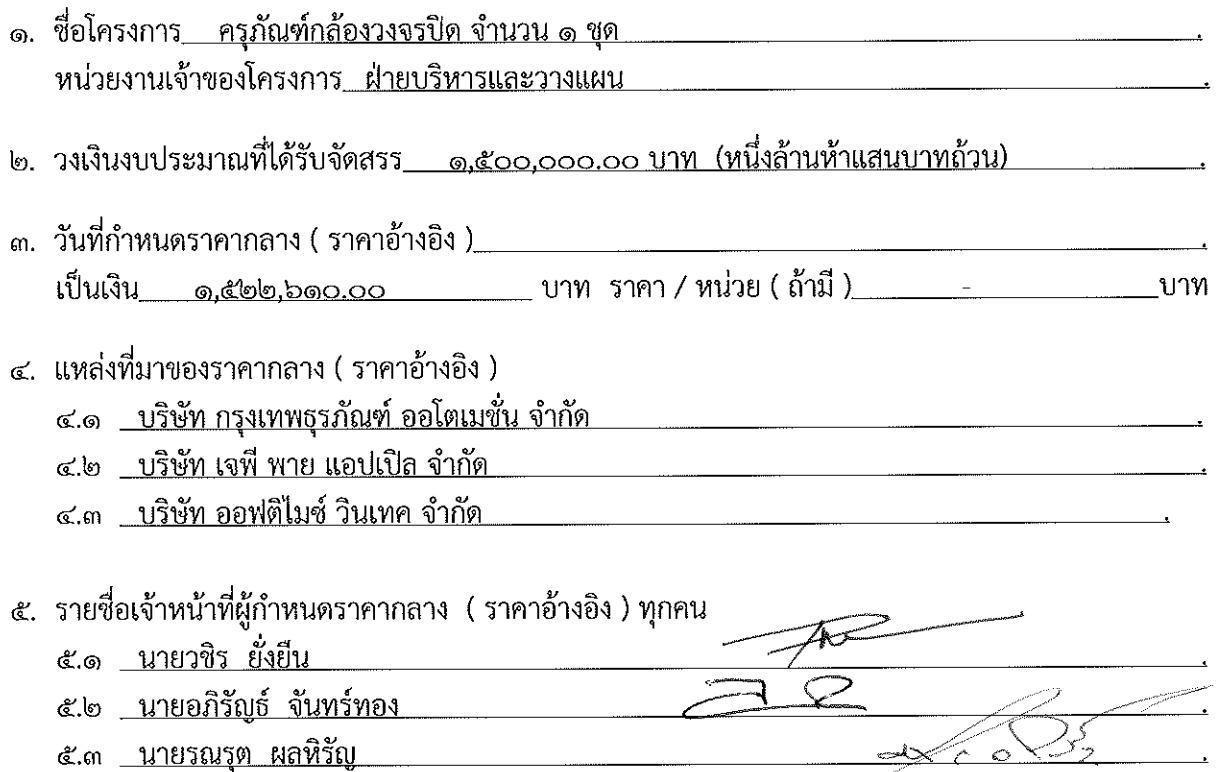 ๑. ชื่อโครงการ ครุภัณฑ์กล้องวงจรปิด จำนวน ๑ ชุด
หน่วยงานเจ้าของโครงการ ฝ่ายบริหารและวางแผน
๒. วงเงินงบประมาณที่ได้รับจัดสรร ๑,๕๐๐,๐๐๐.๐๐ บาท (หนึ่งล้านห้าแสนบาทถ้วน)
๓. วันที่กำหนดราคากลาง ( ราคาอ้างอิง )
เป็นเงิน ๑,๕๒๒,๖๑๐.๐๐ บาท ราคา / หน่วย ( ถ้ามี ) - บาท
๔. แหล่งที่มาของราคากลาง ( ราคาอ้างอิง )
๔.๑ บริษัท กรุงเทพธุรภัณฑ์ ออโตเมชั่น จำกัด
๔.๒ บริษัท เจพี พาย แอปเปิล จำกัด
๔.๓ บริษัท ออฟติไมซ์ วินเทค จำกัด
๕. รายชื่อเจ้าหน้าที่ผู้กำหนดราคากลาง ( ราคาอ้างอิง ) ทุกคน
๕.๑ นายวชิร ยั่งยืน
๕.๒ นายอภิรัญธ์ จันทร์ทอง
๕.๓ นายรณรุต ผลหิรัญ